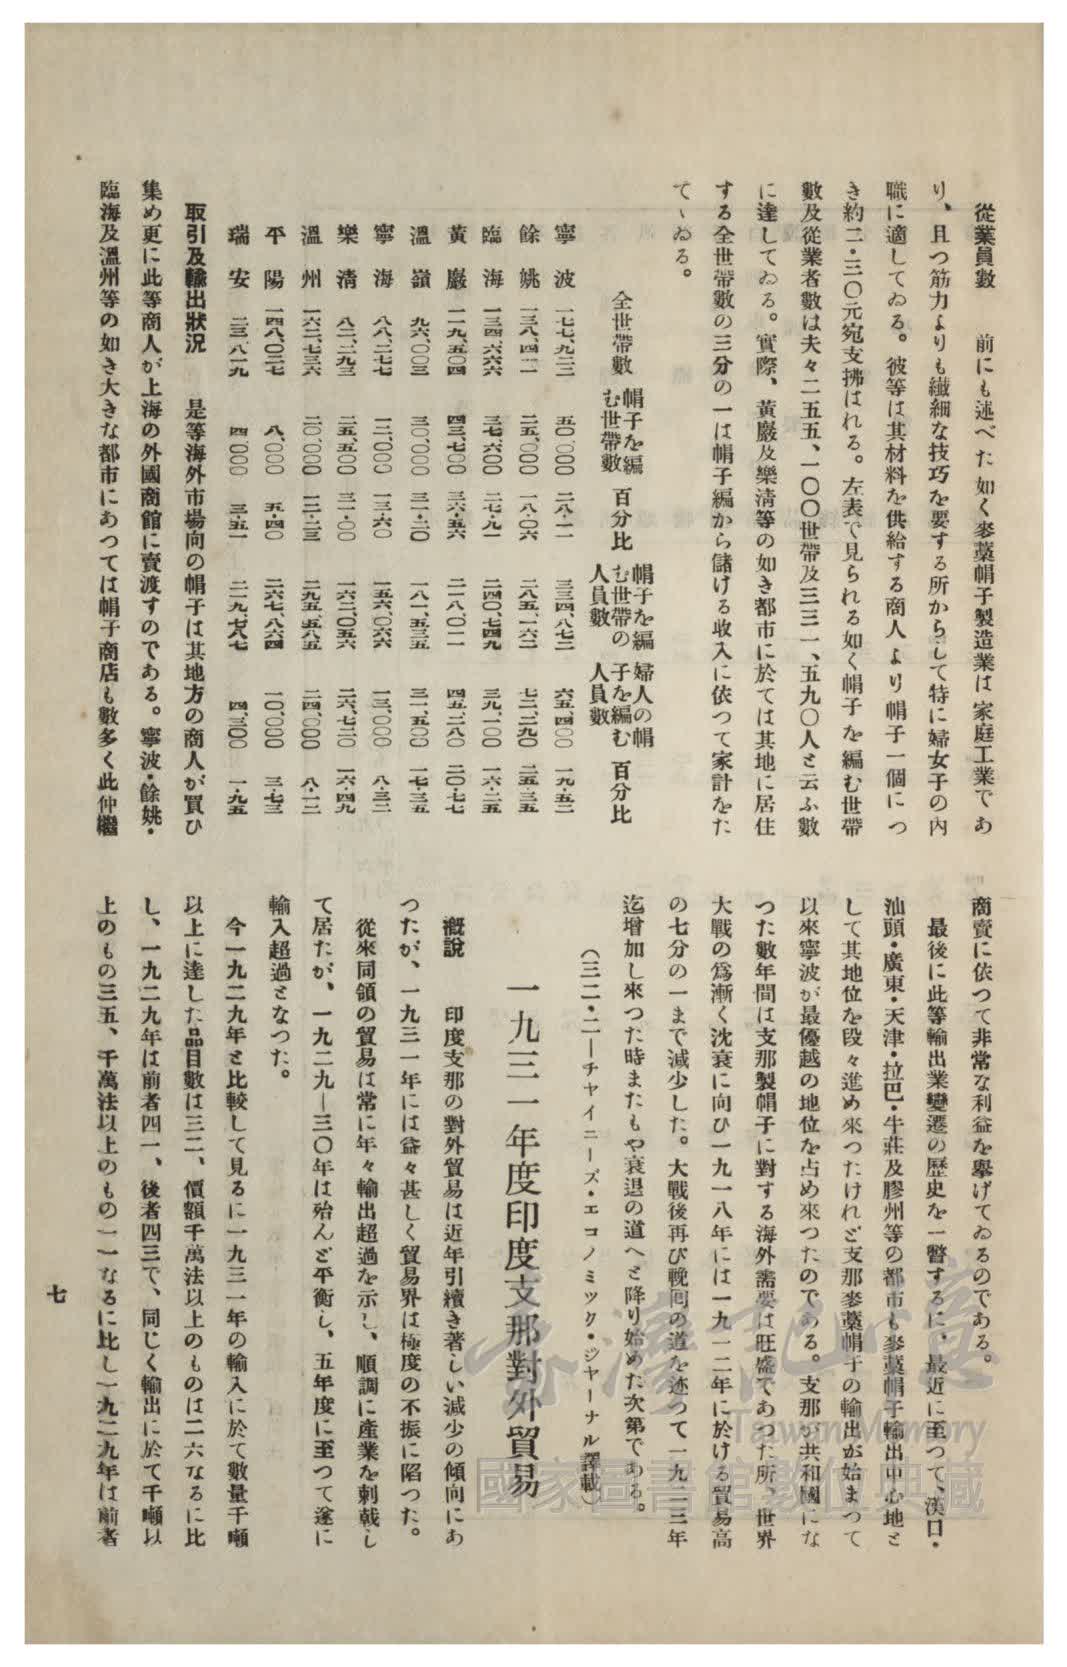 從業員數　前にも述べた如く麥藁帽子製造業は家庭工業であ
り、且つ筋力よりも纖細な技巧を要する所からして特に婦女子の內
職に適してゐる。彼等は其材料を供給する商人より帽子一個につ
き約二・三〇元宛支拂はれる。左表で見られる如く帽子を編む世帶
數及從業者數は夫々二五五、一〇〇世帶及三三一、五九〇人と云ふ數
に達してゐる。實際、黃巖及樂淸等の如き都市に於ては其地に居住
する全世帶數の三分の一は帽子編から儲ける收入に依つて家計をた
てゝゐる。
全世帶數　帽子を編む世帶數　百分比　帽子を編む世帶の人員數　婦人の帽子を編む人員數　百分比
寧波　一七七、九二三　五〇、〇〇〇　二八・一一　三三四、八七二　六五、四〇〇　一九・五二
餘姚　一三八、四二一　二五、〇〇〇　一八・〇六　二八五、一六二　七二、二九〇　二五・三五
臨海　一三四、六六六　三七、六〇〇　二七・九一　二四〇、七四九　三九、一〇〇　一六・二五
黃巖　一一九、五〇四　四三、七〇〇　三六・五六　二一八、〇一一　四五、二八〇　二〇・七七
溫嶺　九六、〇〇三　三〇、〇〇〇　三一・二〇　一八一、五三五　三一、五〇〇　一七・三五
寧海　八八、二七七　一二、〇〇〇　一三・六〇　一五六、〇六六　一三、〇〇〇　八・三二
樂淸　八二、二九三　二五、五〇〇　三一・〇〇　一六二、〇五六　二六、七二〇　一六・四九
溫州　一六二、七三六　二〇、〇〇〇　一二・二三　二九五、五八五　二四、〇〇〇　八・一二
平陽　一四八、〇二七　八、〇〇〇　五・四〇　二六七、八六四　一〇、〇〇〇　三・七三
瑞安　一二三、八一九　四、〇〇〇　三・五一　二一九、七八七　四、三〇〇　一・九五
取引及輸出狀況　是等海外市場向の帽子は其地方の商人が買ひ
集め更に此等商人が上海の外國商館に賣渡すのである。寧波・餘姚・
臨海及溫州等の如き大きな都市にあつては帽子商店も數多く此仲繼
商賣に依つて非常な利益を擧げてゐるのである。
最後に此等輸出業變遷の歷史を一瞥するに、最近に至つて、漢口・
汕頭・廣東・天津・拉巴・牛莊及膠州等の都市も麥藁帽子輸出中心地と
して其地位を段々進め來つたけれど支那麥藁帽子の輸出が始まつて
以來寧波が最優越の地位を占め來つたのである。支那が共和國にな
つた數年間は支那製帽子に對する海外需要は旺盛であつた所、世界
大戰の爲漸く沈衰に向ひ一九一八年には一九一二年に於ける貿易高
の七分の一まで減少した。大戰後再び輓囘の道を辿つて一九二三年
迄增加し來つた時またもや衰退の道へと降り始めた次第である。
（三二・二ーチャイニーズ・エコノミック・ジャーナル譯載）
一九三一年度印度支那對外貿易
槪說　印度支那の對外貿易は近年引續き著しい減少の傾向にあ
つたが、一九三一年には益々甚しく貿易界は極度の不振に陷つた。
從來同領の貿易は常に年々輸出超過を示し、順調に產業を刺戟し
て居たが、一九二九ー三〇年は殆んど平衡し、五年度に至つて遂に
輸入超過となつた。
今一九二九年と比較して見るに一九三一年の輸入に於て數量千噸
以上に達した品目數は三二、價額千萬法以上のものは二六なるに比
し、一九二九年は前者四一、後者四三で、同じく輸出に於て千噸以
上のもの三五、千萬法以上のもの一一なるに比し一九二九年は前者
七
臺灣記憶
Taiwan Memory
國家圖書館數位典藏